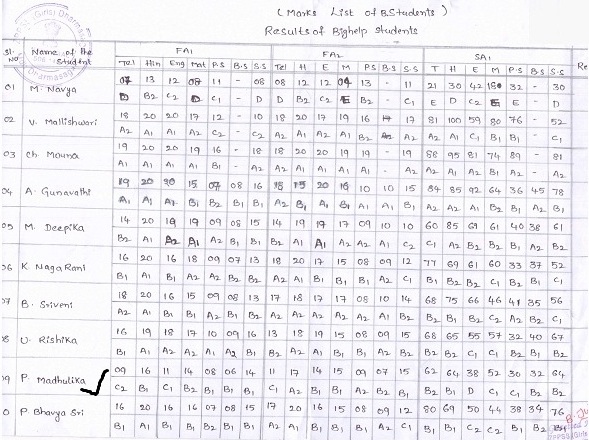 (Marks List of B.Students)
Results of Bighelp Students
Sl. NO Name of the Student FA1 FA2 SA1 Re
Tel Hin Eng Mat P.S B.S S.S Tel H E M P.S B.S S.S T H E M P.S B.S S.S
01 M. Navya 07 13 12 08 11 - 08 08 12 12 04 13 - 11 21 30 42 18 32 - 30
D B2 C2 D C1 - D D B2 C2 E B2 - C1 E D C2 E E - D
02 V. Mallishwari 18 20 20 17 12 - 10 18 20 17 19 16 17 81 100 59 80 76 - 52
A2 A1 A1 A2 C2 - C2 A2 A1 A2 A1 B2 A2 A2 A1 C1 B1 B1 - C1
03 Ch. Mouna 19 20 20 19 16 - 18 18 20 20 19 19 - 19 88 95 81 74 89 - 81
A1 A1 A1 A1 B1 - A2 A2 A1 A1 A1 A1 - A2 A2 A1 A2 B1 A2 - A2
04 A. Gunavathi 19 20 20 15 07 08 16 15 20 10 10 15 84 85 92 64 36 45 78
A1 A1 B2 B2 B1 B1 A2 A1 A1 B1 A2 A2 A1 B2 B1 A2 B1
05 M. Deepika 14 20 19 19 09 08 15 14 19 19 17 09 10 10 60 85 69 61 40 38 61
B2 A1 A2 A1 A2 B1 B1 B2 A1 A1 A2 A2 A1 C2 C1 A2 B2 B2 B1 A2 B2
06 K. Naga Rani 16 20 16 18 09 07 13 18 20 17 15 08 09 12 77 69 61 60 33 37 52
B1 A1 B1 A2 A2 B2 B2 A2 A1 B1 B1 B1 A2 C1 B1 B2 B2 C1 B2 B1 C1
07 B. Sriveni 18 20 16 15 09 08 13 17 18 17 17 08 10 14 68 75 66 46 41 35 56
A2 A1 B1 B1 A2 B1 B2 A2 A2 B1 A2 B1 A1 B2 B2 B1 B2 C2 A2 B2 C1
08 U. Rishika 16 19 18 17 10 09 16 13 18 19 15 08 09 15 68 65 55 57 32 40 67
B1 A1 A2 A2 A1 A2 B1 B2 A2 A1 B1 B1 A2 B1 B2 B2 C1 C1 B2 B1 B2
09 P. Madhulika 09 16 11 14 08 06 14 11 17 14 15 09 07 15 62 64 38 52 30 32 64
C2 B1 C1 B2 B1 B1 B1 C1 A2 B1 B2 A2 B2 B1 B1 B2 D C1 C1 B2 B2
10 P. Bhavya Sri 16 20 16 16 07 08 15 17 20 16 15 08 09 12 80 69 50 44 38 34 76
B1 A1 B1 B1 B2 B1 B1 A2 A1 B1 B1 B1 A2 C1 B1 B2 C1 C2 B1 B2 B1